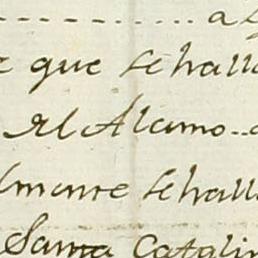 a
que se halla
El Alamo
se halla
Santa Catalin